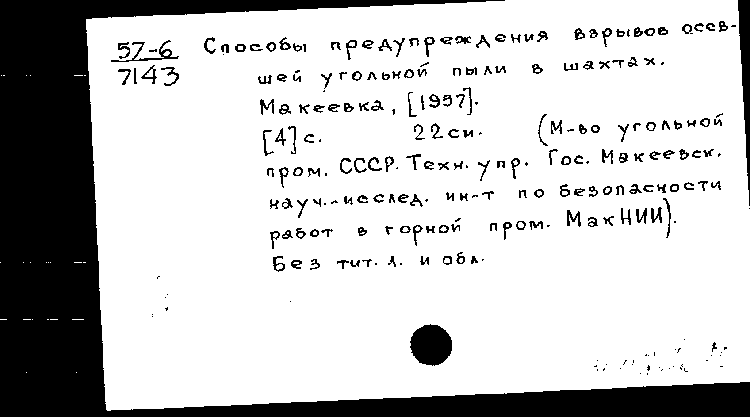 57-6
7143
Способы предупреждения взрывов осев-
шей угольной пыли в шахтах.
Макеевка, [1957].
[4] с. 22 см. (М-во угольной
пром. СССР. Техн. упр. Гос. Макеевск.
науч.-исслед. ин-т по безопасности
работ в горной пром. МакНИИ).
Без тит. л. и обл.